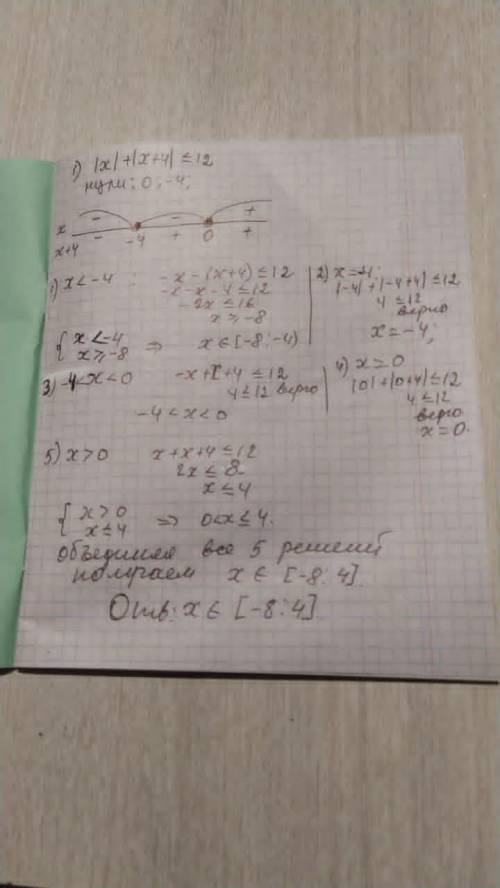 1) |x|+|x+4| ≤ 12
нули: 0; -4;
x - - +
x+4 - -4 + 0 +
1) x < -4 -x-(x+4) ≤ 12
-x-x-4 ≤ 12
-2x ≤ 16
x ≥ -8
{ x < -4
x ≥ -8 ⇒ x ∈ [-8; -4)
2) x = -4;
|-4|+|-4+4| ≤ 12
4 ≤ 12
верно
x = -4;
3) -4 < x < 0 -x+x+4 ≤ 12
4 ≤ 12 верно
-4 < x < 0
4) x = 0
|0|+|0+4| ≤ 12
4 ≤ 12
верно
x = 0.
5) x > 0 x+x+4 ≤ 12
2x ≤ 8
x ≤ 4
{ x > 0
x ≤ 4 ⇒ 0 < x ≤ 4.
объединяя все 5 решений
получаем x ∈ [-8; 4]
Отв: x ∈ [-8; 4]